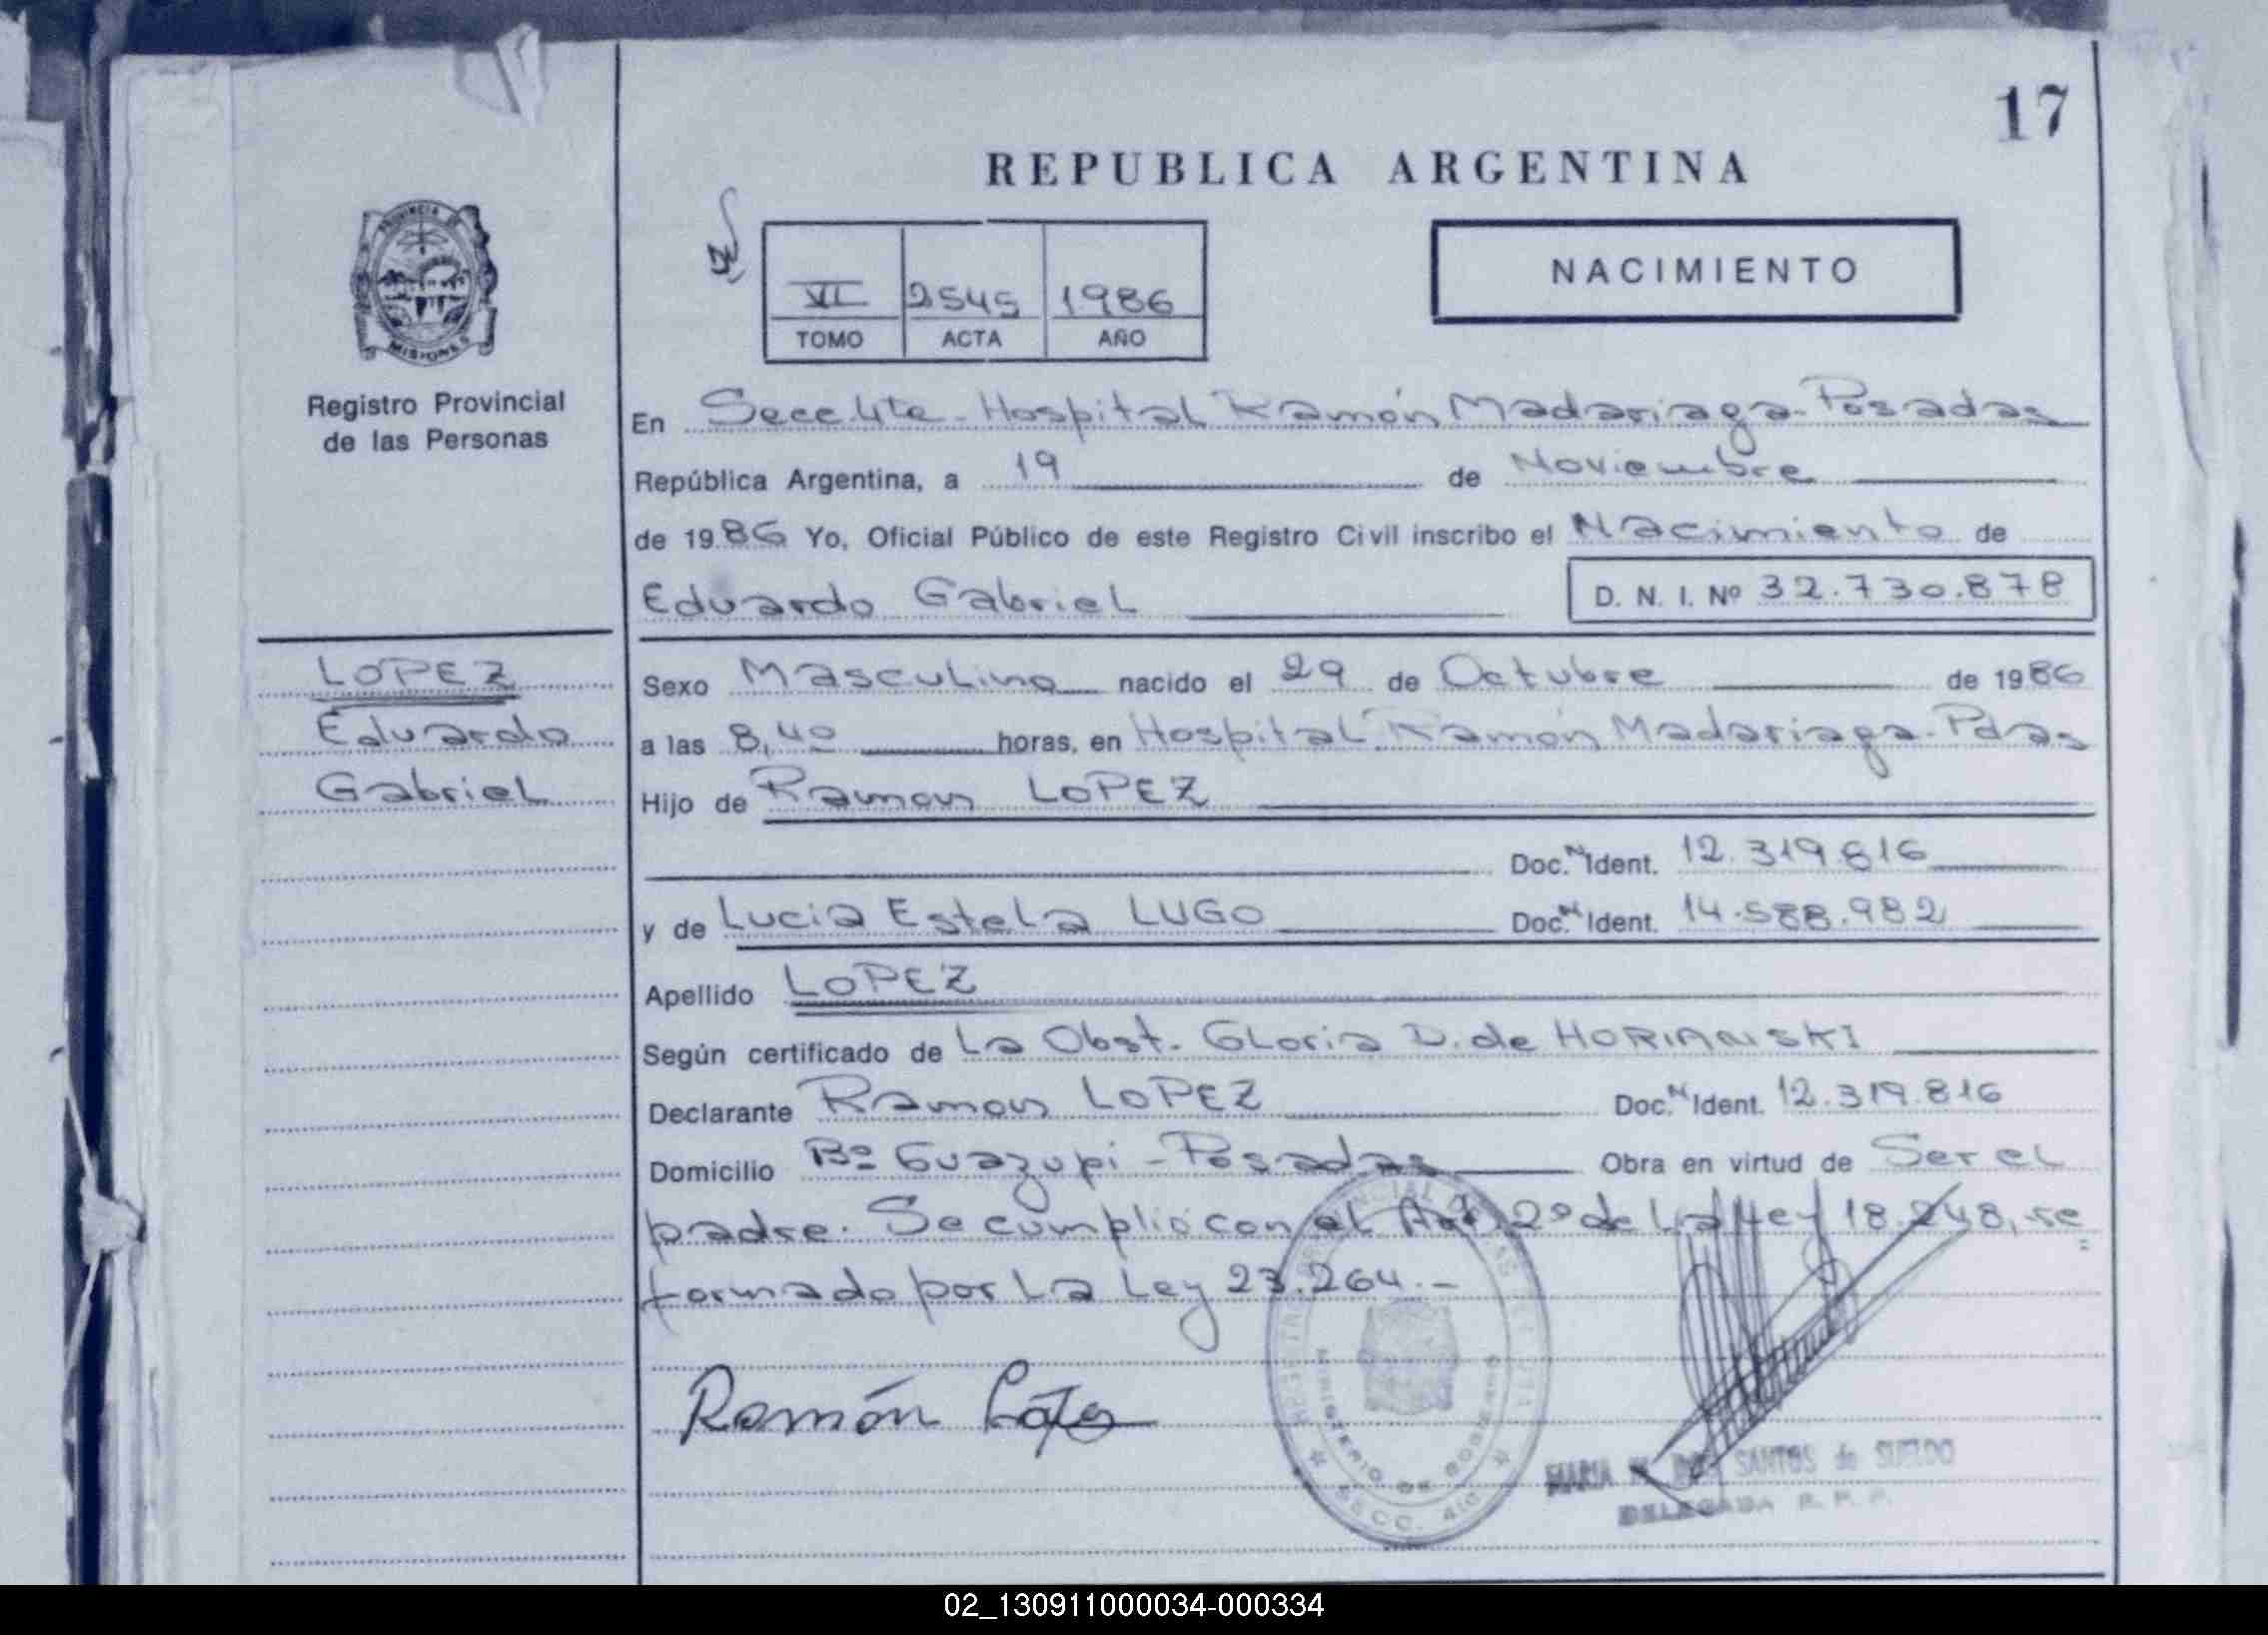 17
REPUBLICA ARGENTINA
PROVINCIA DE
MISIONES
Registro Provincial
de las Personas
VI 2545 1986
TOMO ACTA AÑO
NACIMIENTO
En Secc 4ta - Hospital Ramón Madariaga - Posadas
República Argentina, a 19 de Noviembre
de 1986 Yo, Oficial Público de este Registro Civil inscribo el Nacimiento de
Eduardo Gabriel D. N. I. Nº 32.730.878
LOPEZ
Eduardo
Gabriel
Sexo Masculino nacido el 29 de Octubre de 1986
a las 8,40 horas, en Hospital Ramón Madariaga - Pdas
Hijo de Ramon LOPEZ
Doc. N Ident. 12.319.816
y de Lucia Estela LUGO Doc. N Ident. 14.588.982
Apellido LOPEZ
Según certificado de La Obst. Gloria D. de
Declarante Ramon LOPEZ Doc. N Ident. 12.319.816
Domicilio Bº Guazupi - Posadas Obra en virtud de Ser el
padre. Se cumplió con el Art. 2º de La Ley 18.248, re
formado por La Ley 23.264.-
Ramón López
MINISTERIO DE GOBIERNO
SECC. 4ta
MARIA DOS SANTOS de SUELDO
DELEGADA R. P. P.
02_130911000034-000334